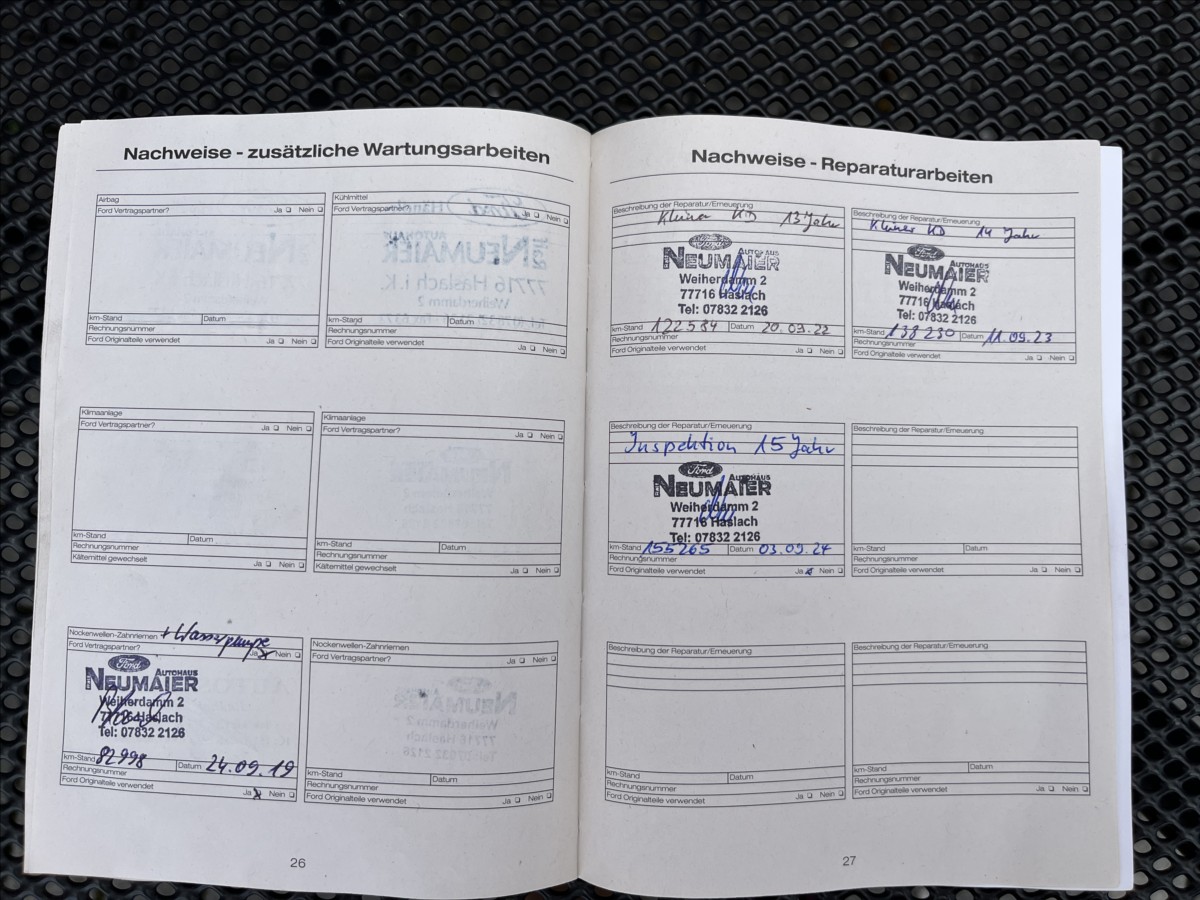 Nachweise - zusätzliche Wartungsarbeiten
Airbag
Ford Vertragspartner? Ja Nein
km-Stand Datum
Rechnungsnummer
Ford Originalteile verwendet Ja Nein
Kühlmittel
Ford Vertragspartner? Ja Nein
km-Stand Datum
Rechnungsnummer
Ford Originalteile verwendet Ja Nein
Klimaanlage
Ford Vertragspartner? Ja Nein
km-Stand Datum
Rechnungsnummer
Kältemittel gewechselt Ja Nein
Klimaanlage
Ford Vertragspartner? Ja Nein
km-Stand Datum
Rechnungsnummer
Kältemittel gewechselt Ja Nein
Nockenwellen-Zahnriemen + Wasserpumpe
Ford Vertragspartner? Ja Nein
Ford
AUTOHAUS
NEUMAIER
Weiherdamm 2
77716 Haslach
Tel: 07832 2126
km-Stand 82998 Datum 24.09.19
Rechnungsnummer
Ford Originalteile verwendet Ja Nein
Nockenwellen-Zahnriemen
Ford Vertragspartner? Ja Nein
km-Stand Datum
Rechnungsnummer
Ford Originalteile verwendet Ja Nein
26
Nachweise - Reparaturarbeiten
Beschreibung der Reparatur/Erneuerung
Kleiner KD 13 Jahr
Ford
AUTOHAUS
NEUMAIER
Weiherdamm 2
77716 Haslach
Tel: 07832 2126
km-Stand 122584 Datum 20.03.22
Rechnungsnummer
Ford Originalteile verwendet Ja Nein
Beschreibung der Reparatur/Erneuerung
Kleiner KD 14 Jahr
Ford
AUTOHAUS
NEUMAIER
Weiherdamm 2
77716 Haslach
Tel: 07832 2126
km-Stand 138230 Datum 11.09.23
Rechnungsnummer
Ford Originalteile verwendet Ja Nein
Beschreibung der Reparatur/Erneuerung
Inspektion 15 Jahr
Ford
AUTOHAUS
NEUMAIER
Weiherdamm 2
77716 Haslach
Tel: 07832 2126
km-Stand 155265 Datum 03.09.24
Rechnungsnummer
Ford Originalteile verwendet Ja Nein
Beschreibung der Reparatur/Erneuerung
km-Stand Datum
Rechnungsnummer
Ford Originalteile verwendet Ja Nein
Beschreibung der Reparatur/Erneuerung
km-Stand Datum
Rechnungsnummer
Ford Originalteile verwendet Ja Nein
Beschreibung der Reparatur/Erneuerung
km-Stand Datum
Rechnungsnummer
Ford Originalteile verwendet Ja Nein
27